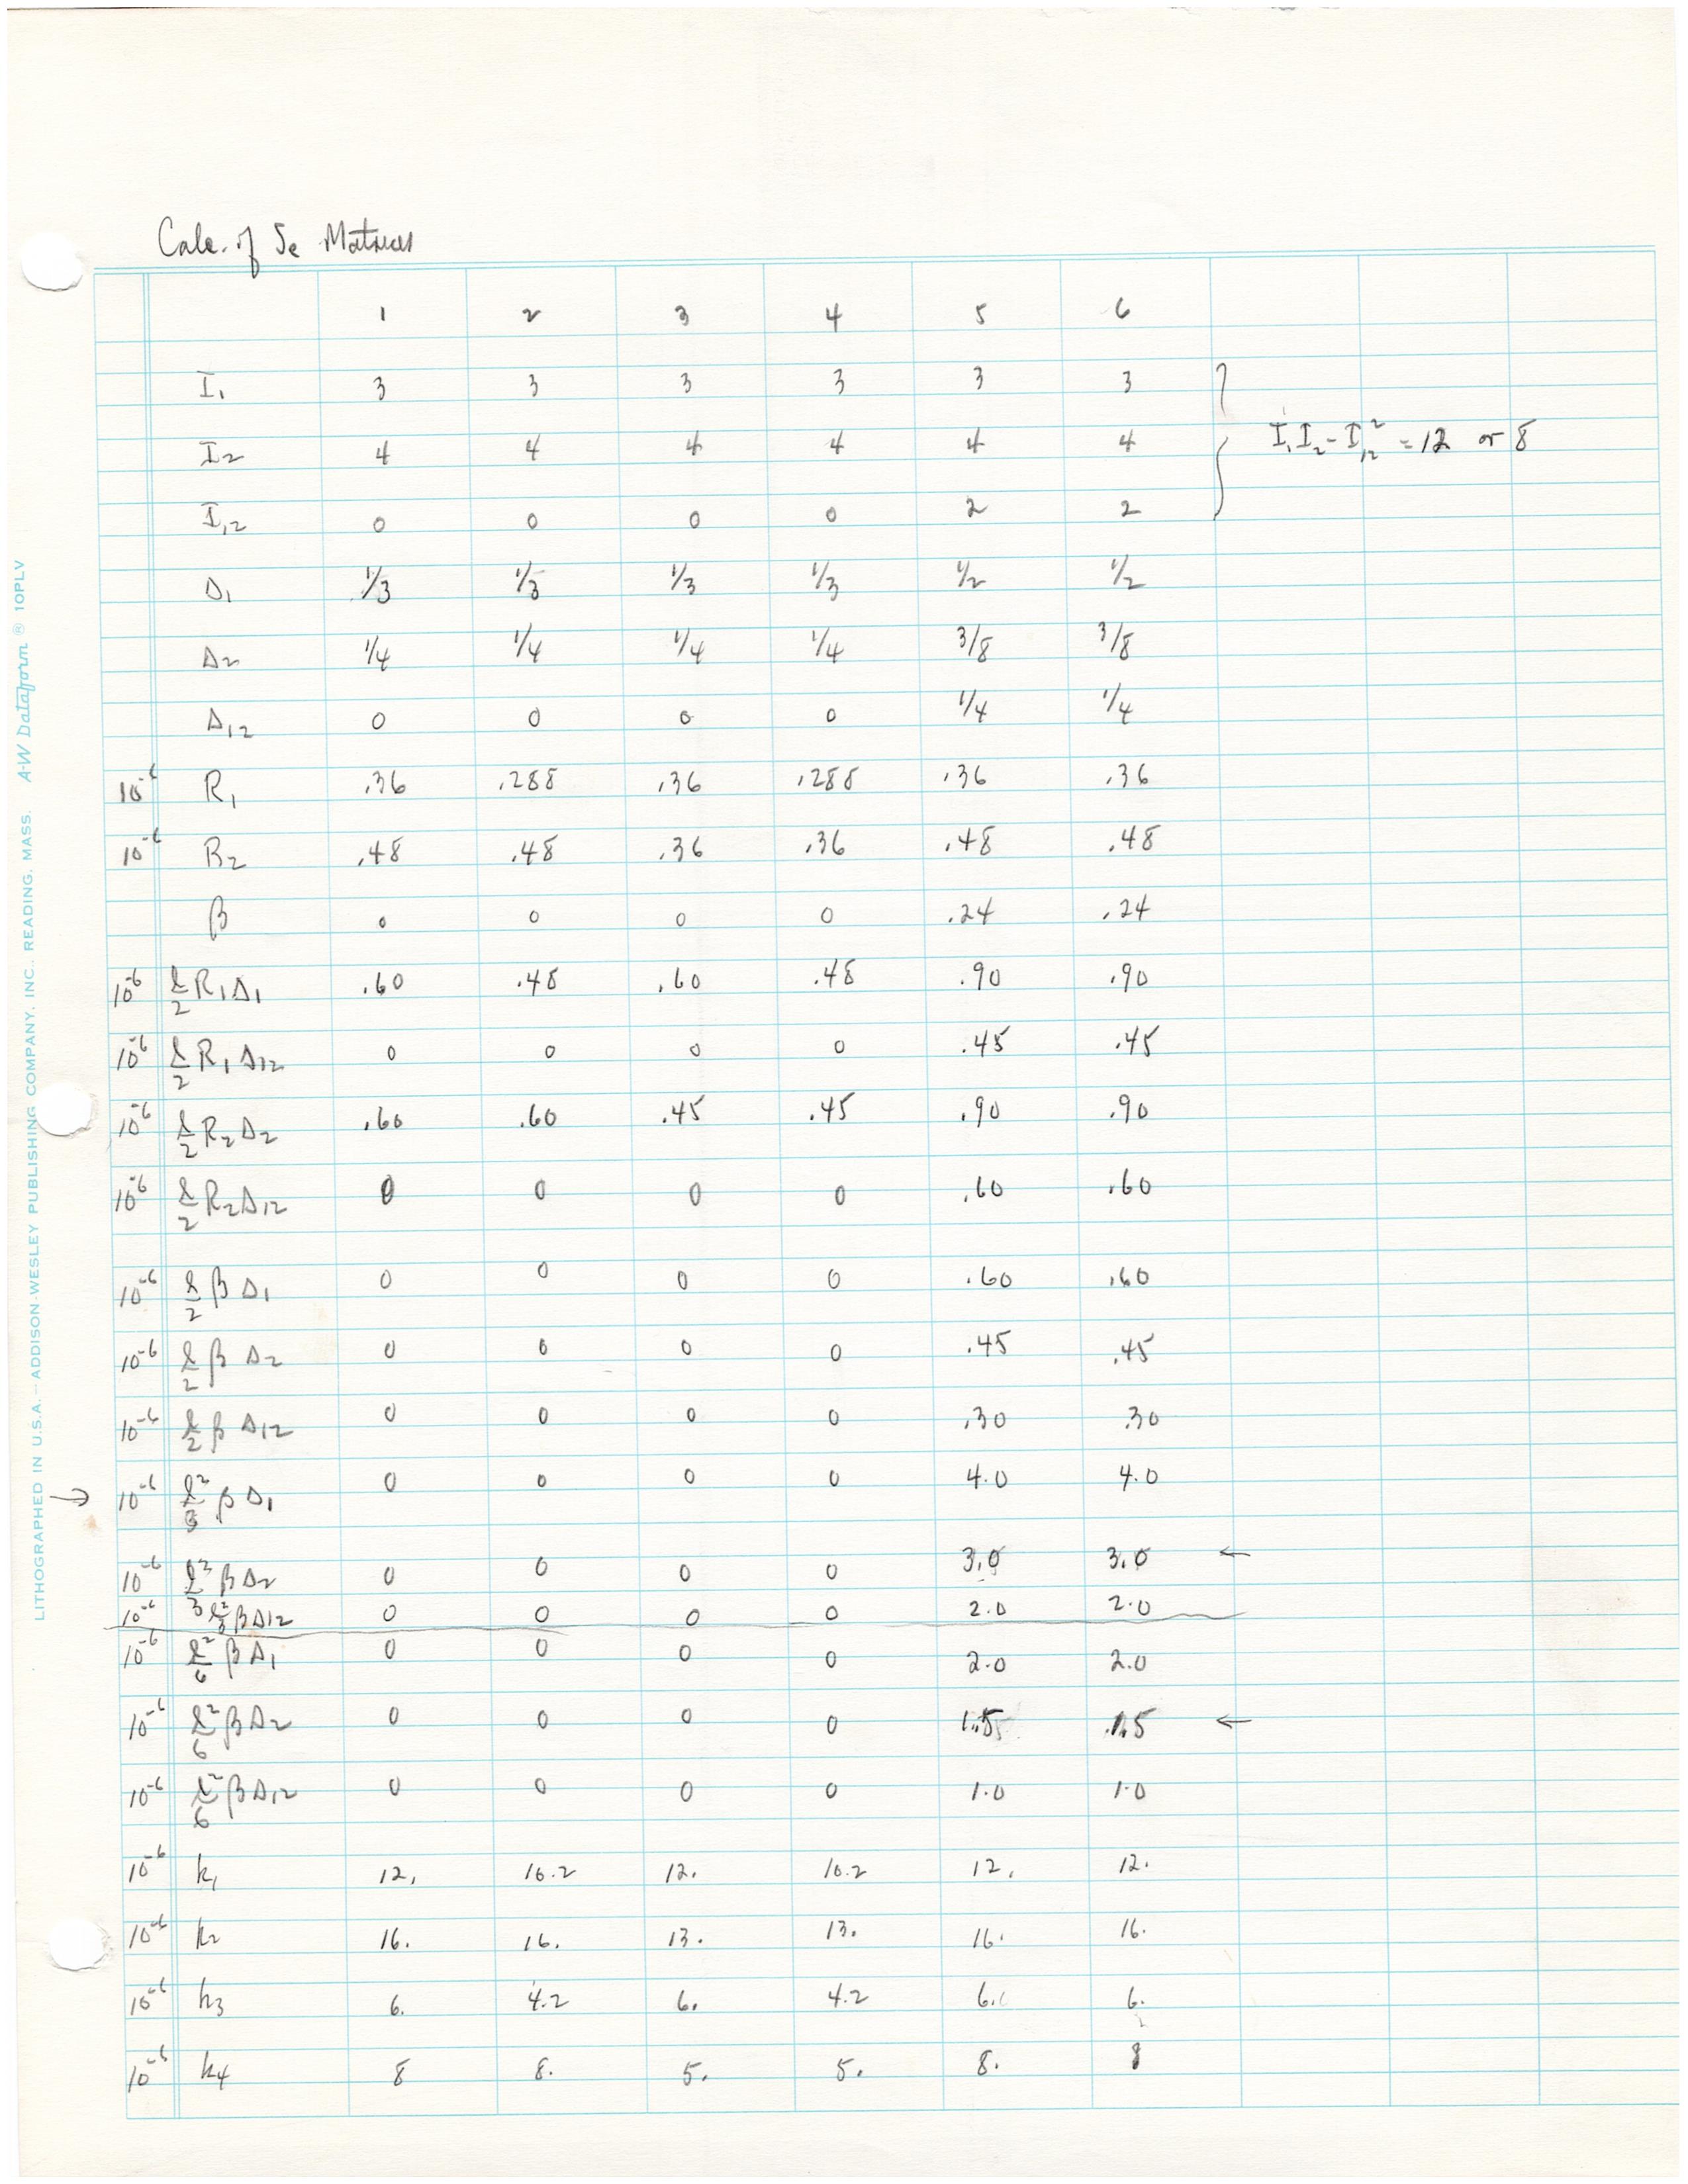 Calc. of Se Matrices
1 2 3 4 5 6
I1 3 3 3 3 3 3
I2 4 4 4 4 4 4 I1I2 - I12² = 12 or 8
I12 0 0 0 0 2 2
Δ1 1/3 1/3 1/3 1/3 1/2 1/2
Δ2 1/4 1/4 1/4 1/4 3/8 3/8
Δ12 0 0 0 0 1/4 1/4
10⁻⁶ R1 .36 .288 .36 .288 .36 .36
10⁻⁶ R2 .48 .48 .36 .36 .48 .48
β 0 0 0 0 .24 .24
10⁻⁶ l/2 R1Δ1 .60 .48 .60 .48 .90 .90
10⁻⁶ l/2 R1Δ12 0 0 0 0 .45 .45
10⁻⁶ l/2 R2Δ2 .60 .60 .45 .45 .90 .90
10⁻⁶ l/2 R2Δ12 0 0 0 0 .60 .60
10⁻⁶ l/2 βΔ1 0 0 0 0 .60 .60
10⁻⁶ l/2 βΔ2 0 0 0 0 .45 .45
10⁻⁶ l/2 βΔ12 0 0 0 0 .30 .30
→ 10⁻⁶ l²/3 βΔ1 0 0 0 0 4.0 4.0
10⁻⁶ l²/3 βΔ2 0 0 0 0 3.0 3.0 ←
10⁻⁶ l²/3 βΔ12 0 0 0 0 2.0 2.0
10⁻⁶ l²/6 βΔ1 0 0 0 0 2.0 2.0
10⁻⁶ l²/6 βΔ2 0 0 0 0 1.5 1.5 ←
10⁻⁶ l²/6 βΔ12 0 0 0 0 1.0 1.0
10⁻⁶ k1 12. 10.2 12. 10.2 12. 12.
10⁻⁶ k2 16. 16. 13. 13. 16. 16.
10⁻⁶ k3 6. 4.2 6. 4.2 6. 6.
10⁻⁶ k4 8 8. 5. 5. 8. 8
LITHOGRAPHED IN U.S.A. — ADDISON-WESLEY PUBLISHING COMPANY, INC., READING, MASS. A-W Dataform ® 10PLV